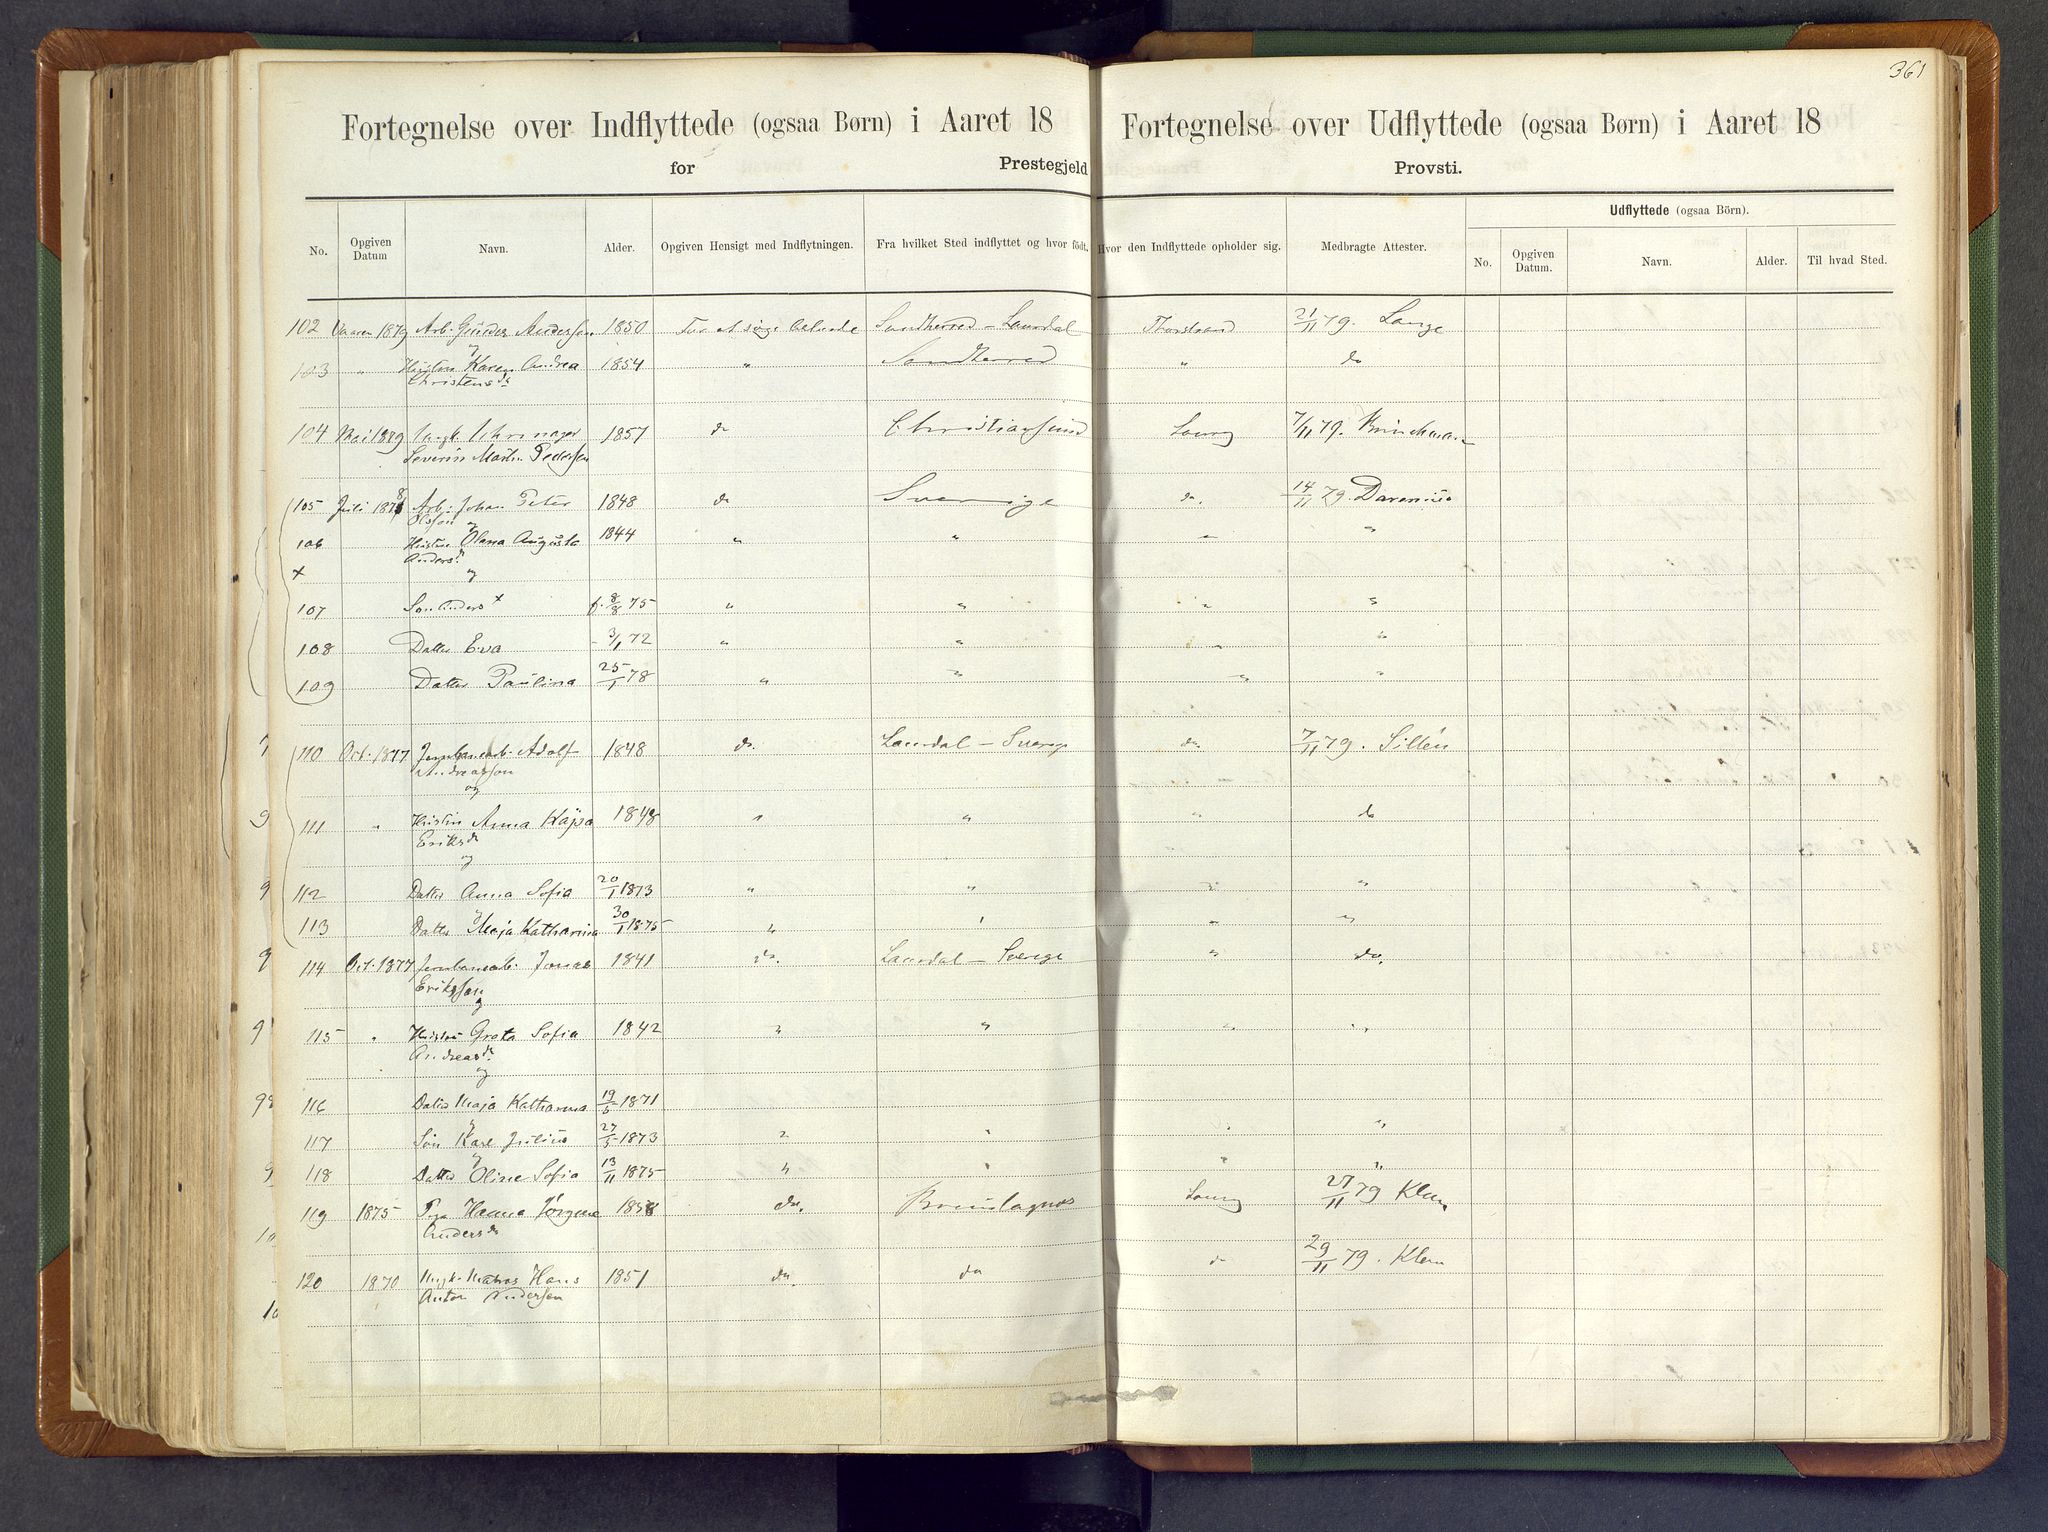 361
Fortegnelse over Indflyttede (ogsaa Børn) i Aaret 18
for Prestegjeld
Fortegnelse over Udflyttede (ogsaa Børn) i Aaret 18
Provsti.
No. Opgiven Datum Navn. Alder. Opgiven Hensigt med Indflytningen. Fra hvilket Sted indflyttet og hvor födt. Hvor den Indflyttede opholder sig. Medbragte Attester.
Udflyttede (ogsaa Börn).
No. Opgiven Datum. Navn. Alder. Til hvad Sted.
102 1879 Arb. Gunder Andersen 1850 For at søge Arbeide Sandherred - Laurdal Thorstrand 21/11 79. Lange
103 " Hustru Karen Andrea 1854 " Sandherred " do
Christensdr
104 Mai 1889 Ungk. 1857 do Christiansund Laurv 7/11 79. Brinchmann
Severin Martin Pedersen
105 Juli 1878 Arb. Johan Peter 1848 do Sverige do. 14/11 79.
Olsson og
106 Hustru Olana Augusta 1844 " " " "
Andersdr
x og
107 Søn Anders x f. 8/8 75 " " " "
108 Datter Eva - 3/1 72 " " " "
109 Datter Paulina 25/1 78 " " " "
110 Oct. 1877 Jernbanearb. Adolf 1848 do. Laurdal - Sverige do. 7/11 79. Sillén
Andreasson
og
111 " Hustru Anna Kajsa 1848 " " " do
Eriksdr
og
112 Datter Anna Sofia 20/1 1873 " " " "
113 Datter Maja Katharina 30/1 1875 " " " "
114 Oct. 1877 Jernbanearb. Jonas 1841 do. Laurdal - Sverige " do.
Eriksson
og
115 " Hustru Greta Sofia 1842 " " " "
Andreasdr
og
116 Datter Maja Katharina 19/6 1871
117 Søn Karl Julius 27/5 1873 " " " "
118 Datter Oline Sofia 13/11 1875 " " " "
119 1875 Pige Hanna Jørgine 1858 do. Brunlagnes Laurv 27/11 79 Klem
Andersdr
120 1870 Ungk. Matros Hans 1851 do. do do 29/11 79. Klem
Anton Andersen